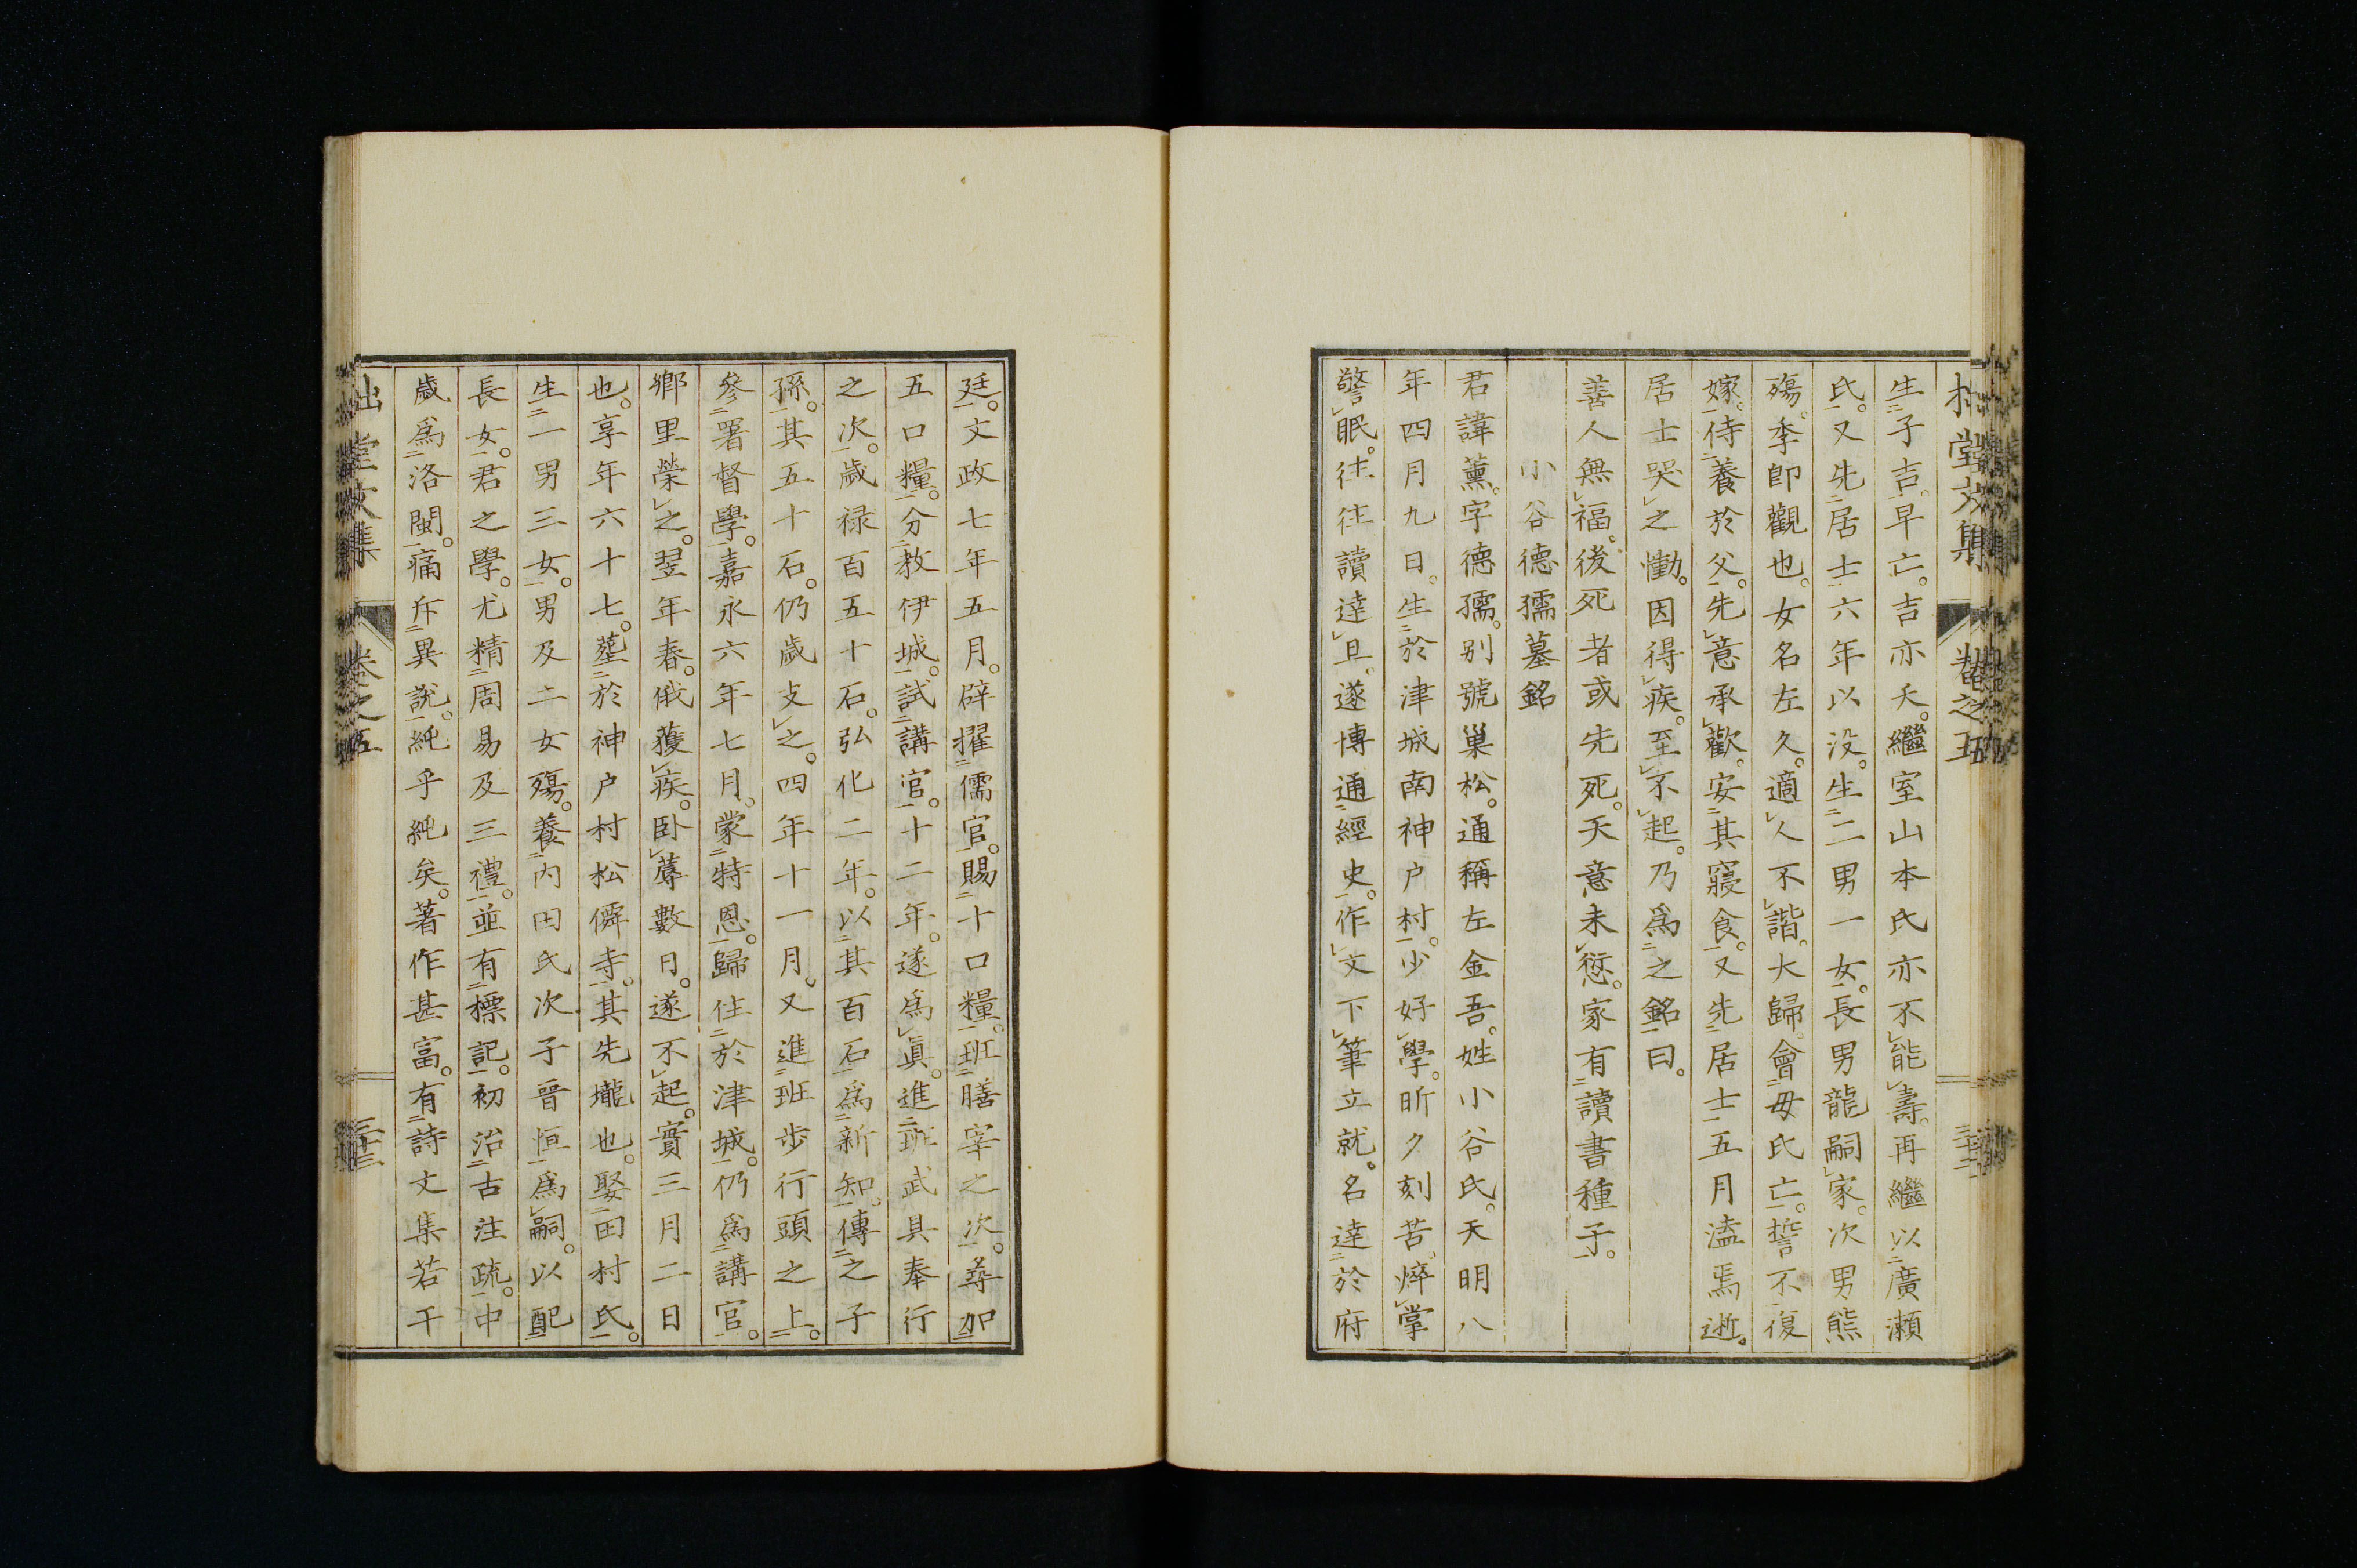 拙堂文集 卷之五 三十二
生子吉。早亡。吉亦夭。繼室山本氏亦不能壽。再繼以廣瀨
氏。又先居士六年以没。生二男一女。長男龍嗣家。次男熊
殤。季卽觀也。女名左久。適人不諧。大歸。會母氏亡。誓不復
嫁。侍養於父。先意承歡。安其寢食。又先居士五月溘焉逝。
居士哭之慟。因得疾。至不起。乃爲之銘曰。
善人無福。後死者或先死。天意未愆。家有讀書種子。
小谷德孺墓銘
君諱薰。字德孺。別號巢松。通稱左金吾。姓小谷氏。天明八
年四月九日。生於津城南神户村。少好學。昕夕刻苦。焠掌
警眠。往往讀達旦。遂博通經史。作文下筆立就。名達於府
廷。文政七年五月。辟擢儒官。賜十口糧。班膳宰之次。尋加
五口糧。分教伊城。試講官。十二年。遂爲眞。進班武具奉行
之次。歲禄百五十石。弘化二年。以其百石爲新知。傳之子
孫。其五十石。仍歲支之。四年十一月。又進班步行頭之上。
參署督學。嘉永六年七月。蒙特恩。歸住於津城。仍爲講官。
鄉里榮之。翌年春。俄獲疾。卧蓐數日。遂不起。實三月二日
也。享年六十七。塟於神户村松僊寺。其先壠也。娶田村氏。
生一男三女。男及二女殤。養内田氏次子晉恒爲嗣。以配
長女。君之學。尤精周易及三禮。並有標記。初治古注疏。中
歲爲洛閩。痛斥異說。純乎純矣。著作甚富。有詩文集若干
拙堂文集 卷之五 三十三